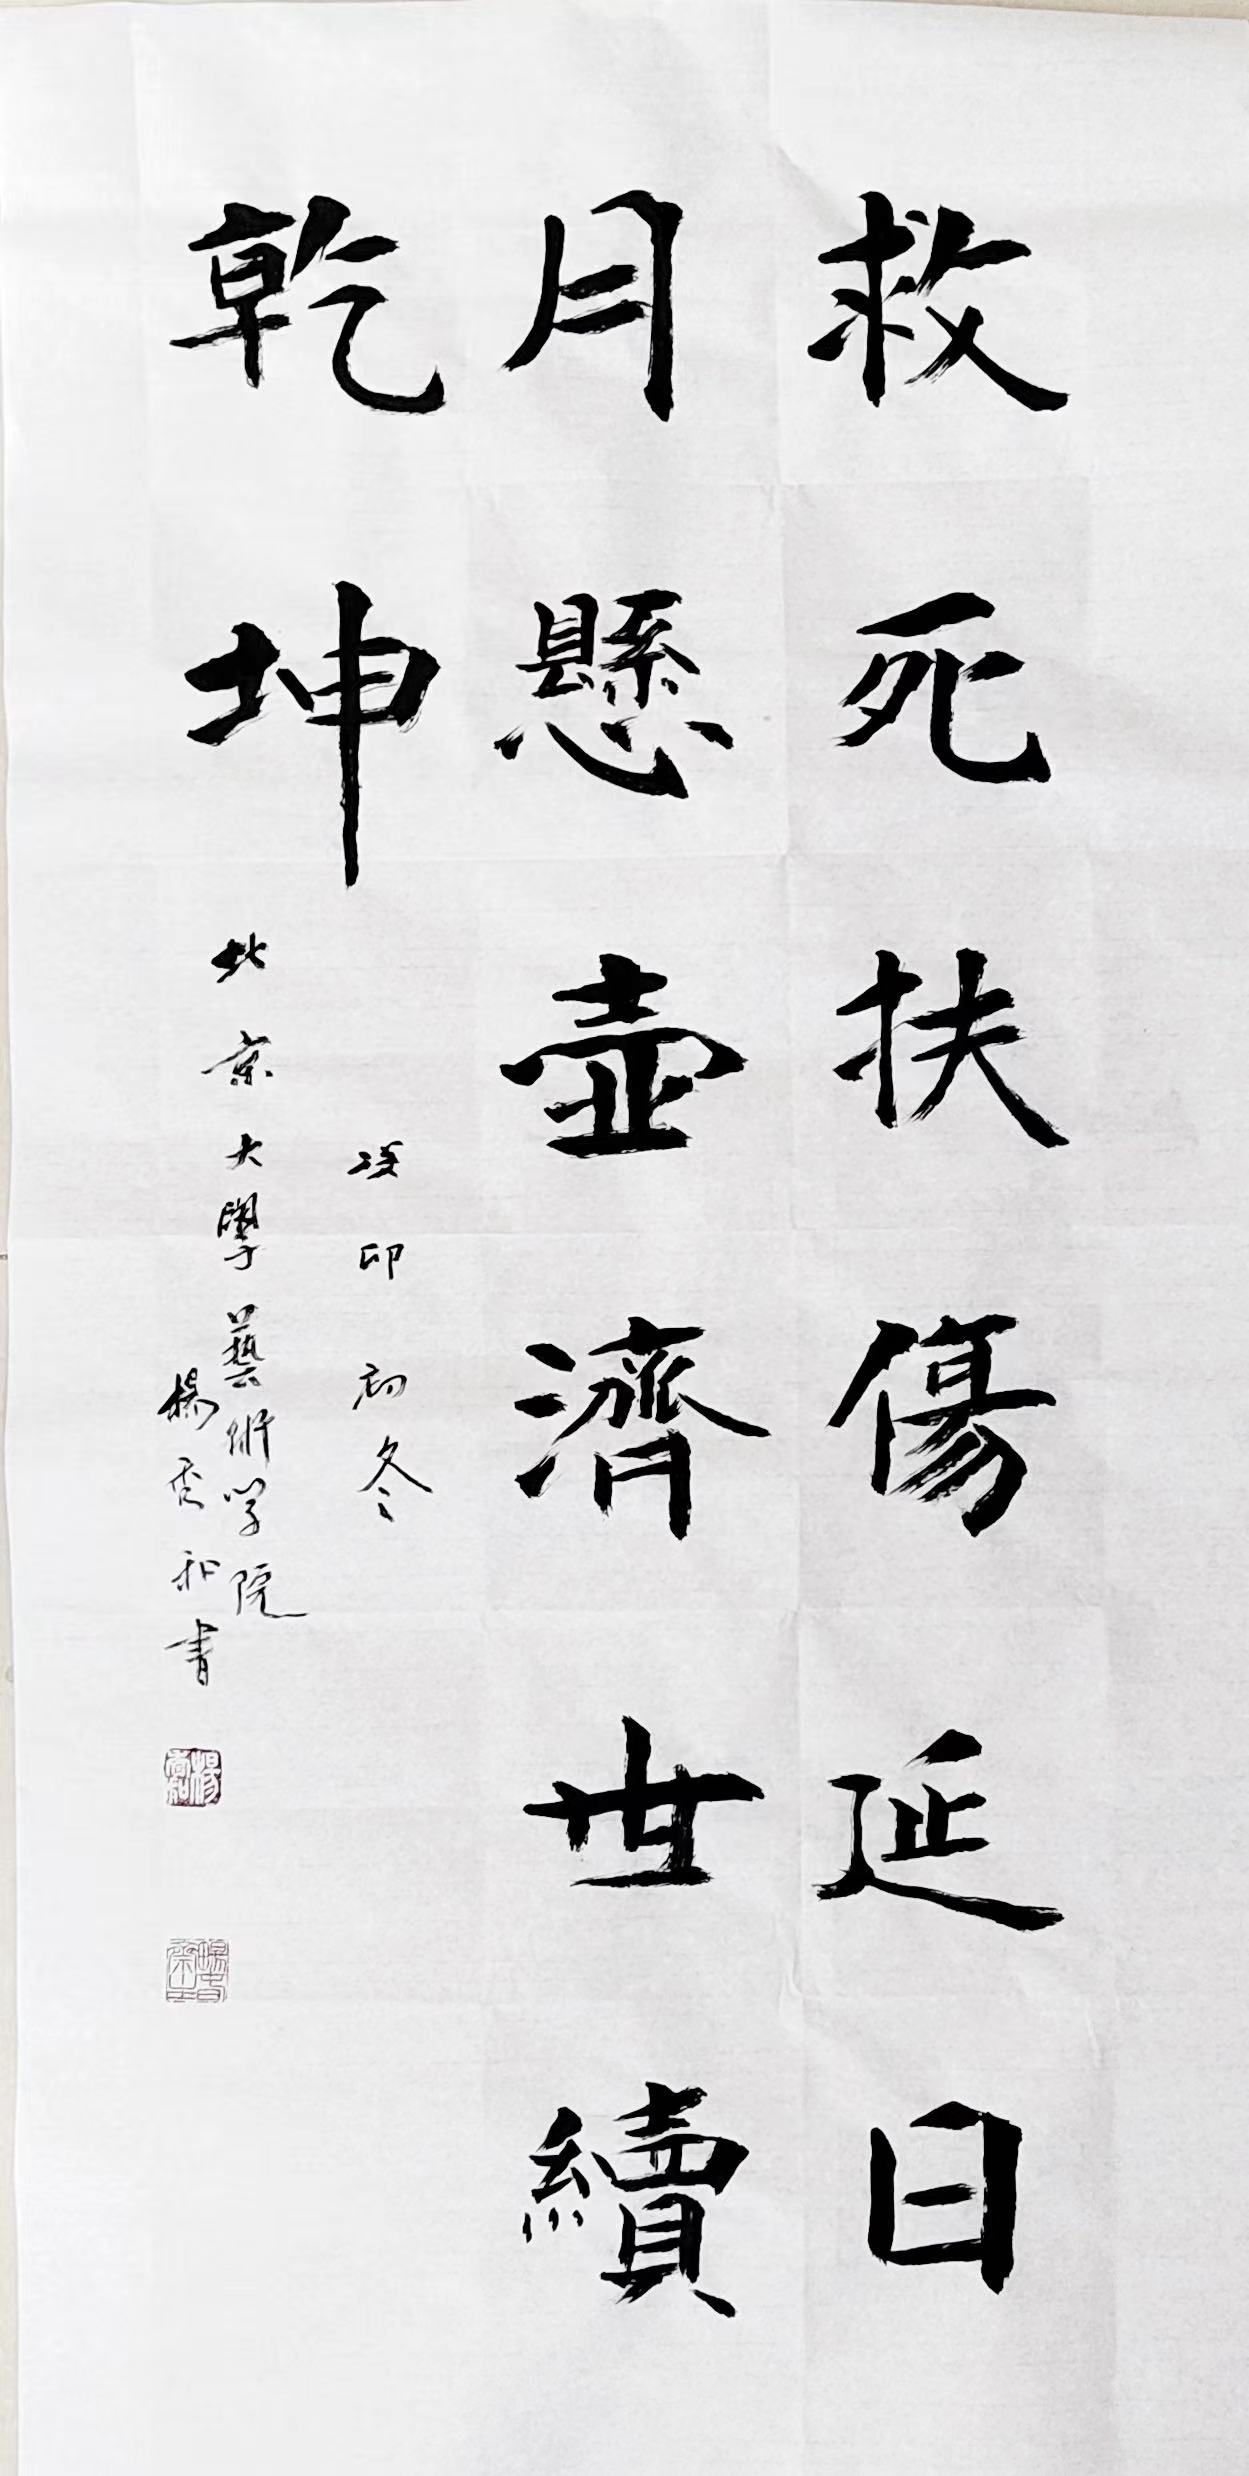 救死扶傷延日
月懸壺濟世續
乾坤
癸卯初冬
北京大學藝術学院
楊和書